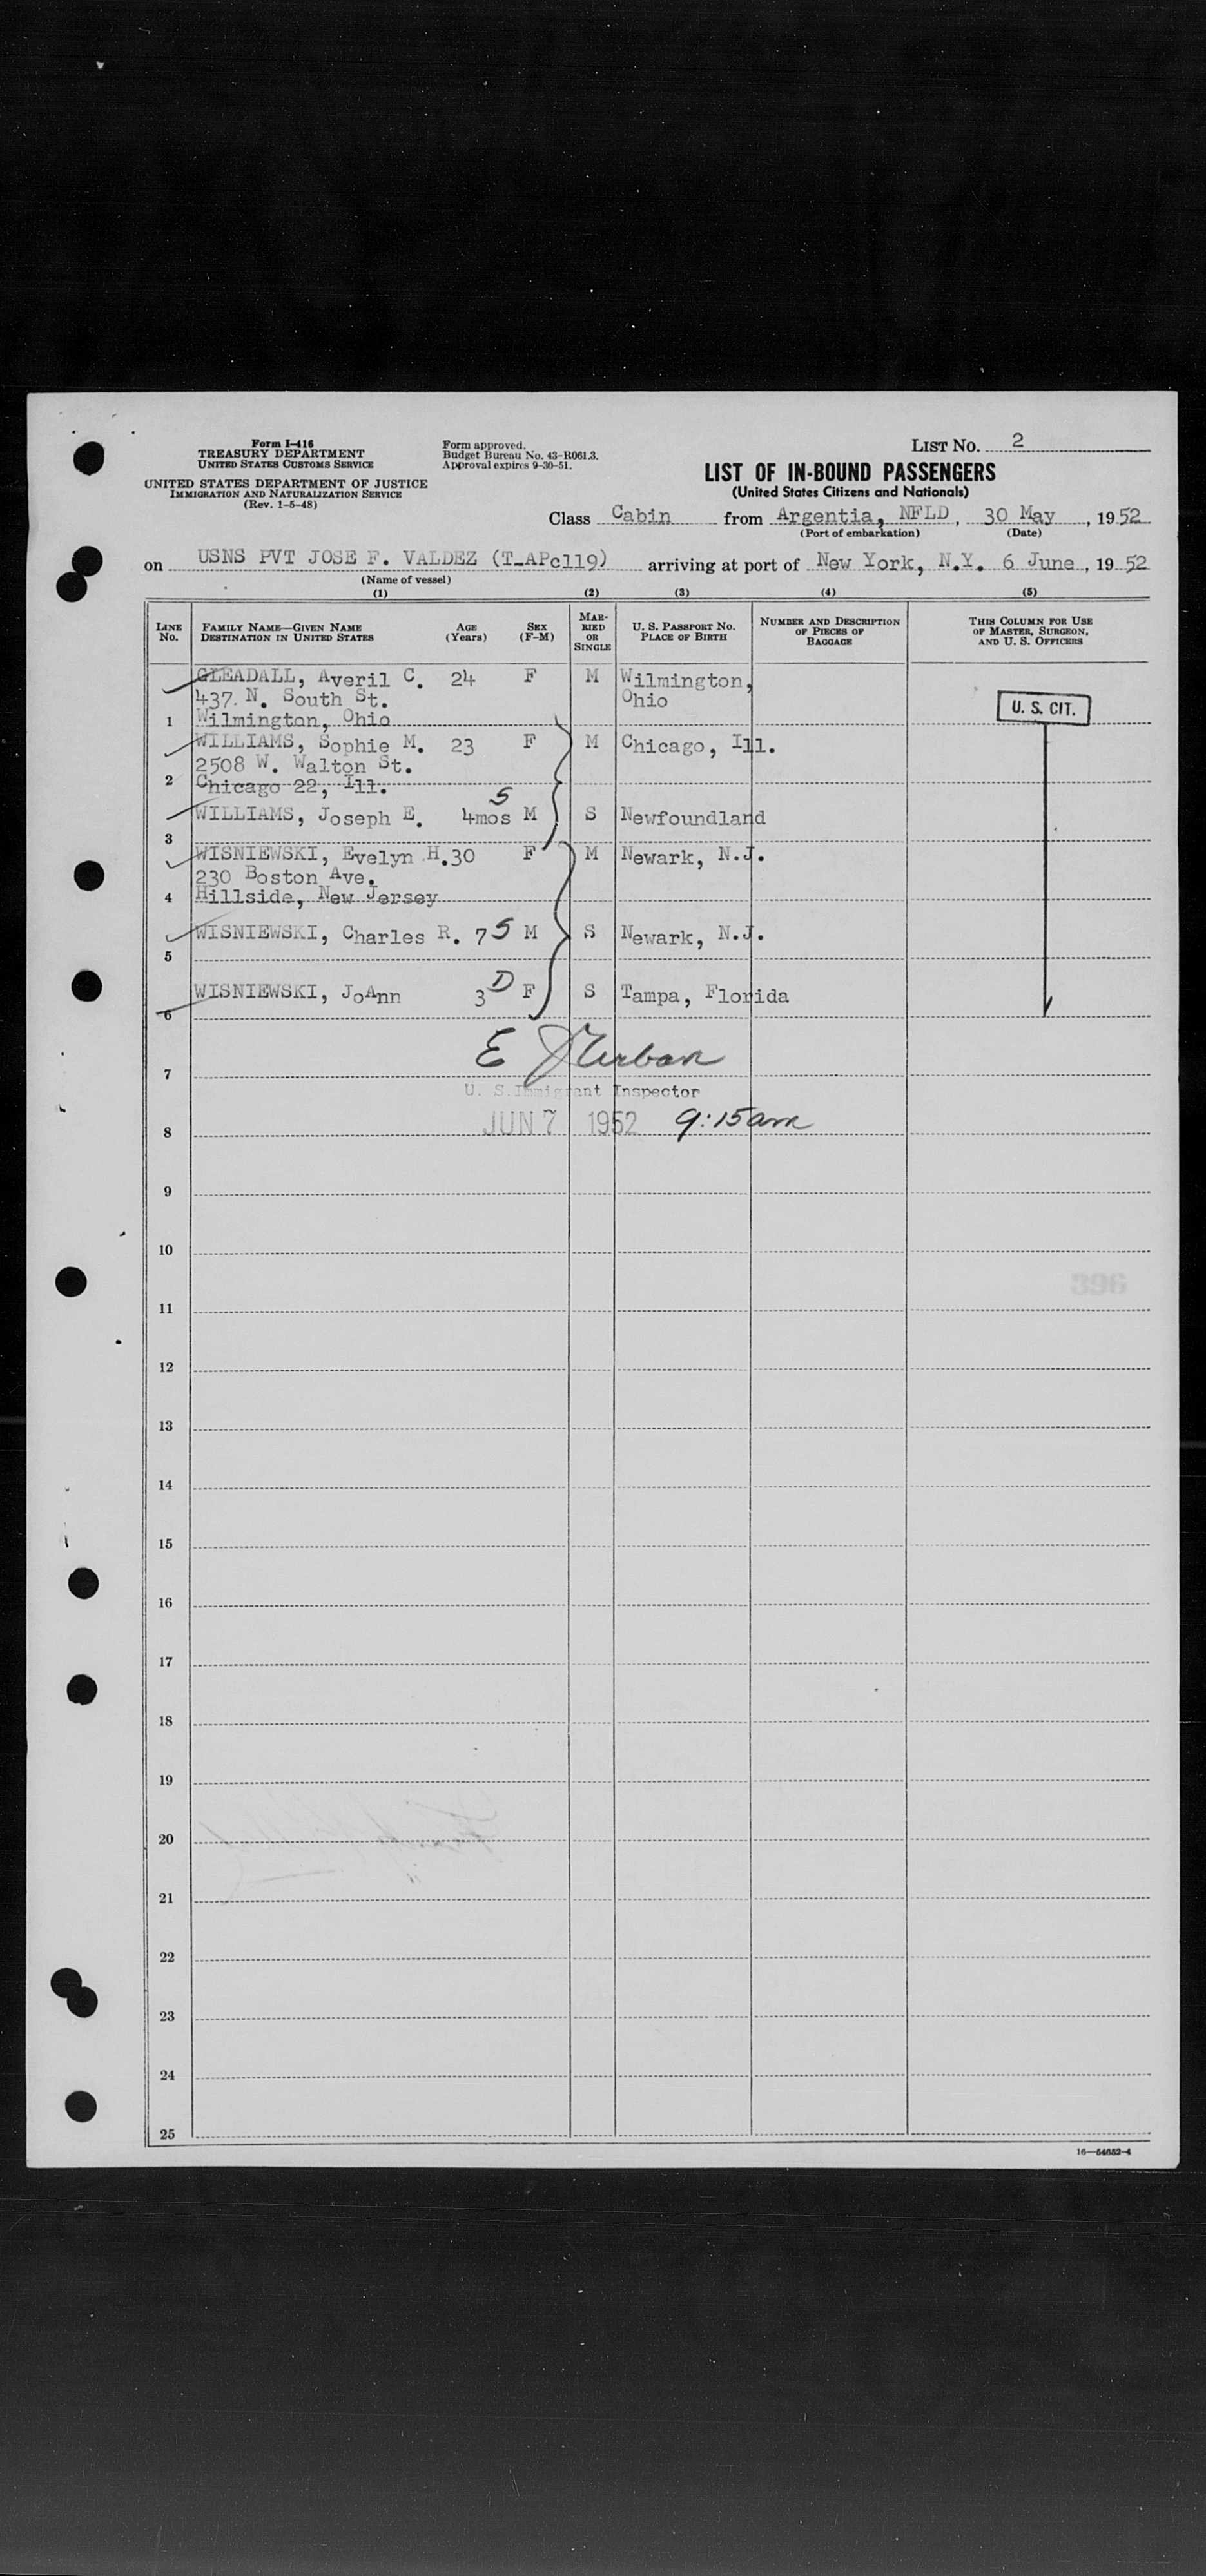 Form I-416
TREASURY DEPARTMENT
UNITED STATES CUSTOMS SERVICE
UNITED STATES DEPARTMENT OF JUSTICE
IMMIGRATION AND NATURALIZATION SERVICE
(Rev. 1-5-48)
Form approved.
Budget Bureau No. 43-R061.3.
Approval expires 9-30-51.
LIST NO. 2
LIST OF IN-BOUND PASSENGERS
(United States Citizens and Nationals)
Class Cabin from Argentia, NFLD, 30 May, 1952
(Port of embarkation) (Date)
on USNS PVT JOSE F. VALDEZ (T_APc119) arriving at port of New York, N.Y. 6 June, 1952
(Name of vessel)
(1) (2) (3) (4) (5)
LINE No. FAMILY NAME—GIVEN NAME DESTINATION IN UNITED STATES AGE (Years) SEX (F-M) MARRIED OR SINGLE U. S. PASSPORT NO. PLACE OF BIRTH NUMBER AND DESCRIPTION OF PIECES OF BAGGAGE THIS COLUMN FOR USE OF MASTER, SURGEON, AND U. S. OFFICERS
GLEADALL, Averil C. 24 F M Wilmington,
437 N. South St. Ohio
1 Wilmington, Ohio U. S. CIT.
WILLIAMS, Sophie M. 23 F M Chicago, Ill.
2508 W. Walton St.
2 Chicago 22, Ill.
S
WILLIAMS, Joseph E. 4mos M S Newfoundland
3
WISNIEWSKI, Evelyn H. 30 F M Newark, N.J.
230 Boston Ave.
4 Hillside, New Jersey
WISNIEWSKI, Charles R. 7 S M S Newark, N.J.
5
WISNIEWSKI, JoAnn 3 D F S Tampa, Florida
6
E
7
U. S. Immigrant Inspector
8 JUN 7 1952 9:15am
9
10
396
11
12
13
14
15
16
17
18
19
20
21
22
23
24
25
16—54652-4